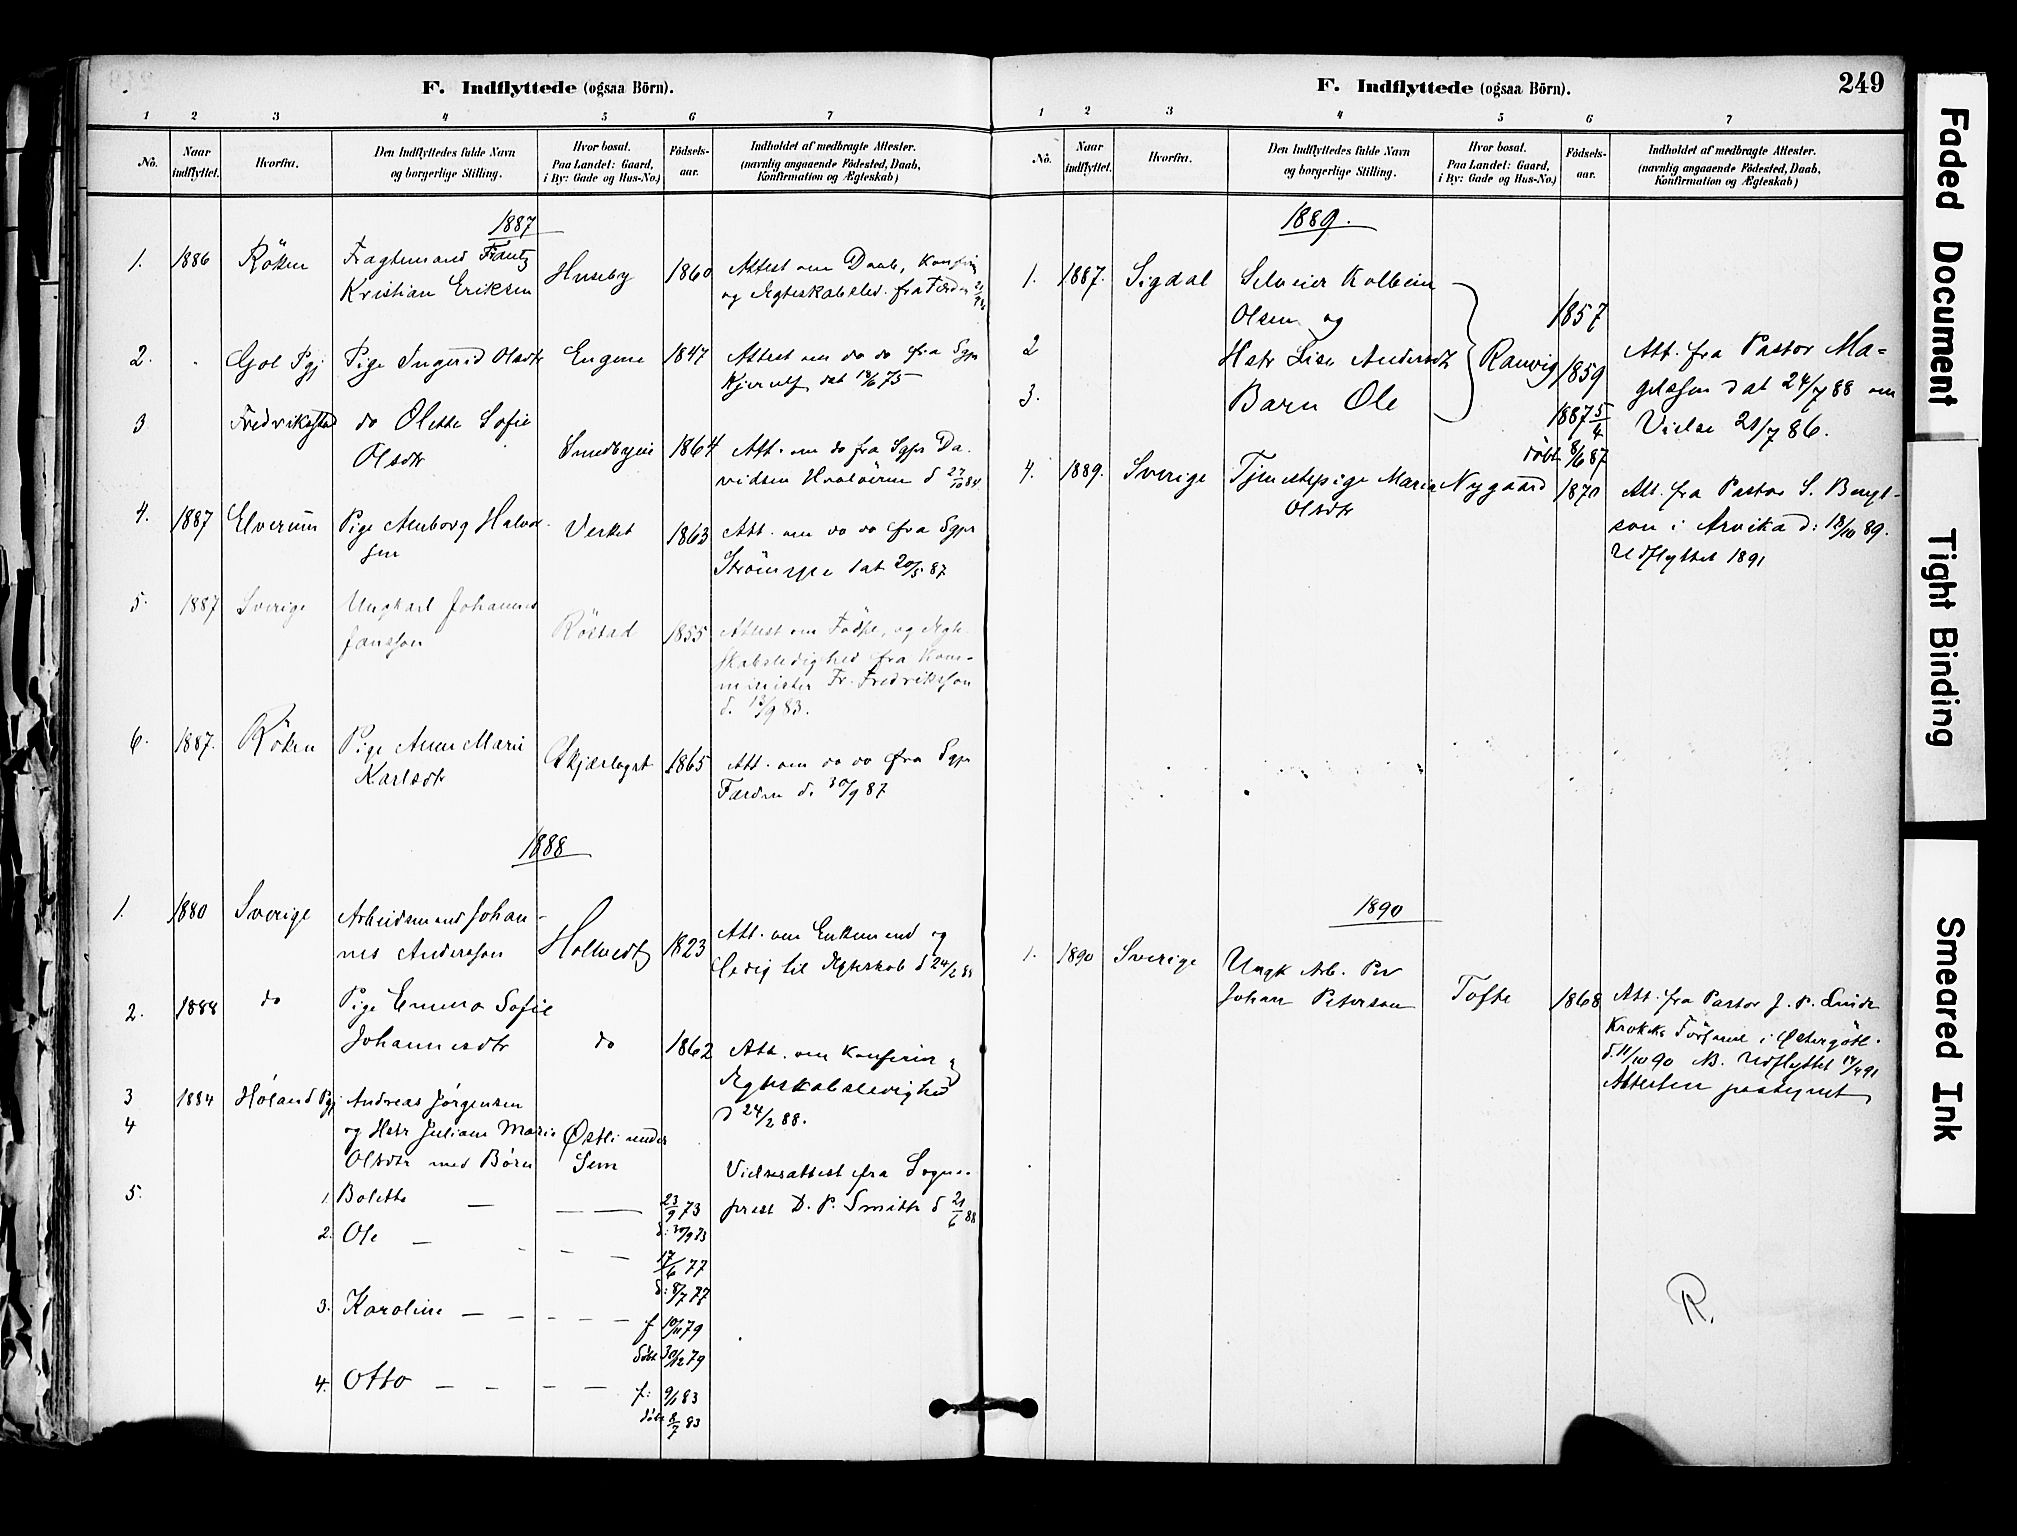 F. Indflyttede (ogsaa Börn).
1 2 3 4 5 6 7
No. Naar indflyttet. Hvorfra. Den Indflyttedes fulde Navn og borgerlige Stilling. Hvor bosat. Paa Landet: Gaard, i By: Gade og Hus-No.) Födsels-aar. Indholdet af medbragte Attester. (navnlig angaaende Födested, Daab, Konfirmation og Ægteskab)
1887
1. 1886 Röken Fragtemand Frantz
Kristian Eriksen Huseby 1860 Attest om Daab, Konfirm
og Ægteskabsled. fra Færden
2. Gol Pgj Pige Ingerid Olsdtr Engene 1847 Attest om do do fra Sgpr
Kjerulf dat 75
3 Fredrikstad do Olette Sofie
Olsdtr Sundbyen 1864 Att. om do fra Sgpr Da-
vidsen Hvalöerne d 27/10 84
4. 1887 Elverum Pige Anborg Halvor-
sen Verket 1863 Att. om do do fra Sgpr
Strömspe dat 20/5 87
5. 1887 Sverige Ungkarl Johannes
Jansson Röstad 1855 Attest om Födsel, og Ægte-
skabsledighed fra Kom-
minister Fr. Fredriksson
d. 13/9 83.
6. 1887. Röken Pige Anne Marie
Karlsdtr Skjærlagst 1865 Att. om do do fra Sgpr
Færden d. 30/9 87
1888
1. 1880 Sverige Arbeidsmand Johan-
nes Andersson Holtvedt 1823 Att. om Enkemand og
Ledig til Ægteskab d 24/2 88
2. 1888 do Pige Emma Sofie
Johannesdtr do 1862 Att. om Konfirm og
Ægteskabsledighed
d 24/2 88.
3 1884 Høland Pgj Andreas Jørgensen
4 og Hstr Juliane Marie Østli under
Olsdtr med Børn Sem Vielsesattest fra Sogne-
5. 1. Bolette — — — 23/9 73 prest D. P. Smith d 21/6 88
d: 30/9 73
2. Ole — - — — 17/6 77
d: 8/7 77
3. Karoline — — — — f 10/11 79
døbt 30/12 79
4. Otto — — — — f: 9/1 83
døbt 8/7 83
F. Indflyttede (ogsaa Börn).
249
1 2 3 4 5 6 7
No. Naar indflyttet. Hvorfra. Den Indflyttedes fulde Navn og borgerlige Stilling. Hvor bosat. Paa Landet: Gaard, i By: Gade og Hus-No.) Födsels-aar. Indholdet af medbragte Attester. (navnlig angaaende Födested, Daab, Konfirmation og Ægteskab)
1889.
1. 1887. Sigdal Selveier Kolbein
Olsen og 1857
2 Hstr Lise Andersdtr Ranvig 1859 Att. fra Pastor Ma-
3. Barn Ole 1887 5/4 gelssen dat 24/7 88 om
døbt 8/6 87 Vielse 21/7 86.
4. 1889. Sverige Tjenestepige Maria Nygaard 1870 Att. fra Pastor S. Bengt-
Olsdtr son i Arvika d: 18/10 89.
Udflyttet 1891
1890
1. 1890 Sverige Ungk Arb. Per
Johan Peterson Tofte 1868 Att. fra Pastor J. P. Lind
Krokeks Församl i Östergötl.
d. 11/10 90 N. Udflyttet 14/4 91
Attesten paategnet
R.
Faded Document
Tight Binding
Smeared Ink